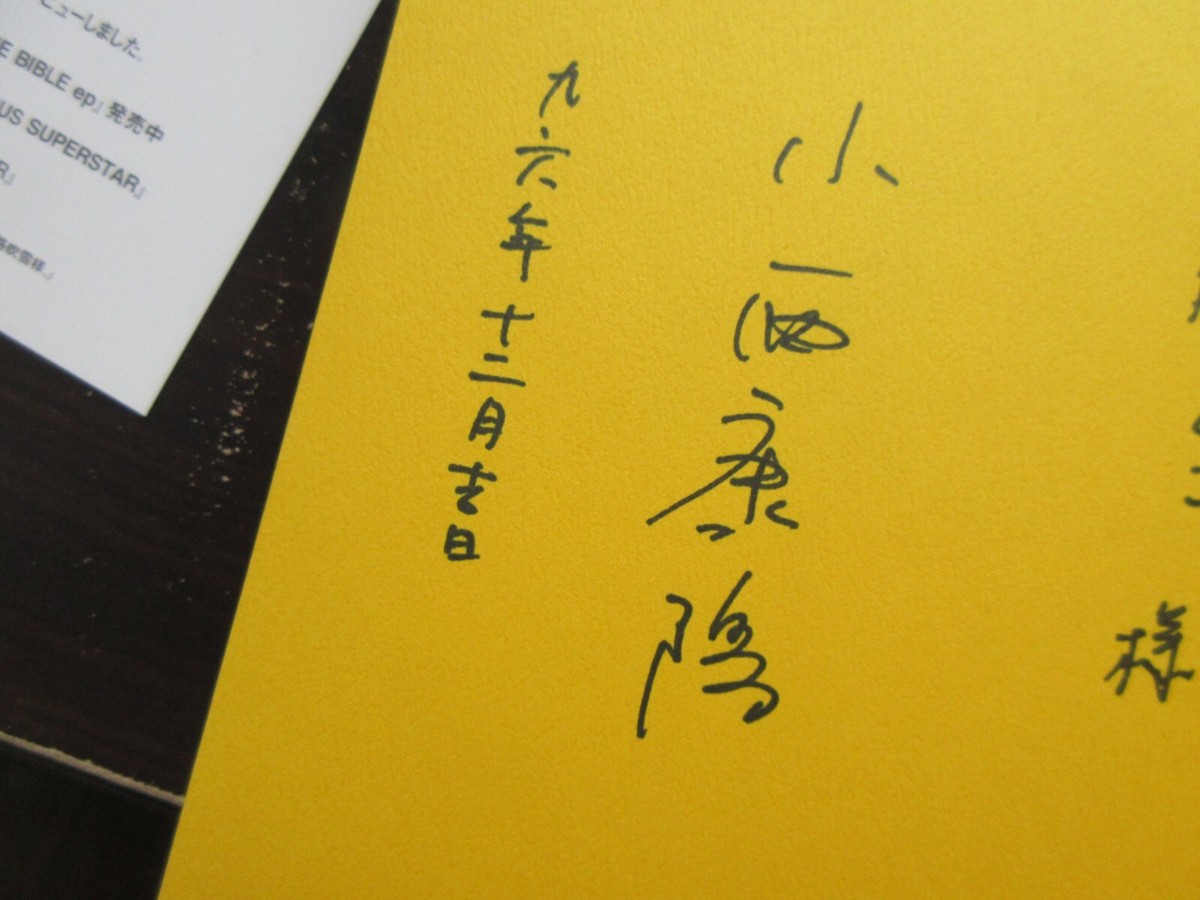 様
小西康陽
九六年十二月吉日
ビューしました。
E BIBLE ep』発売中
US SUPERSTAR』
R』
吹雪様。』